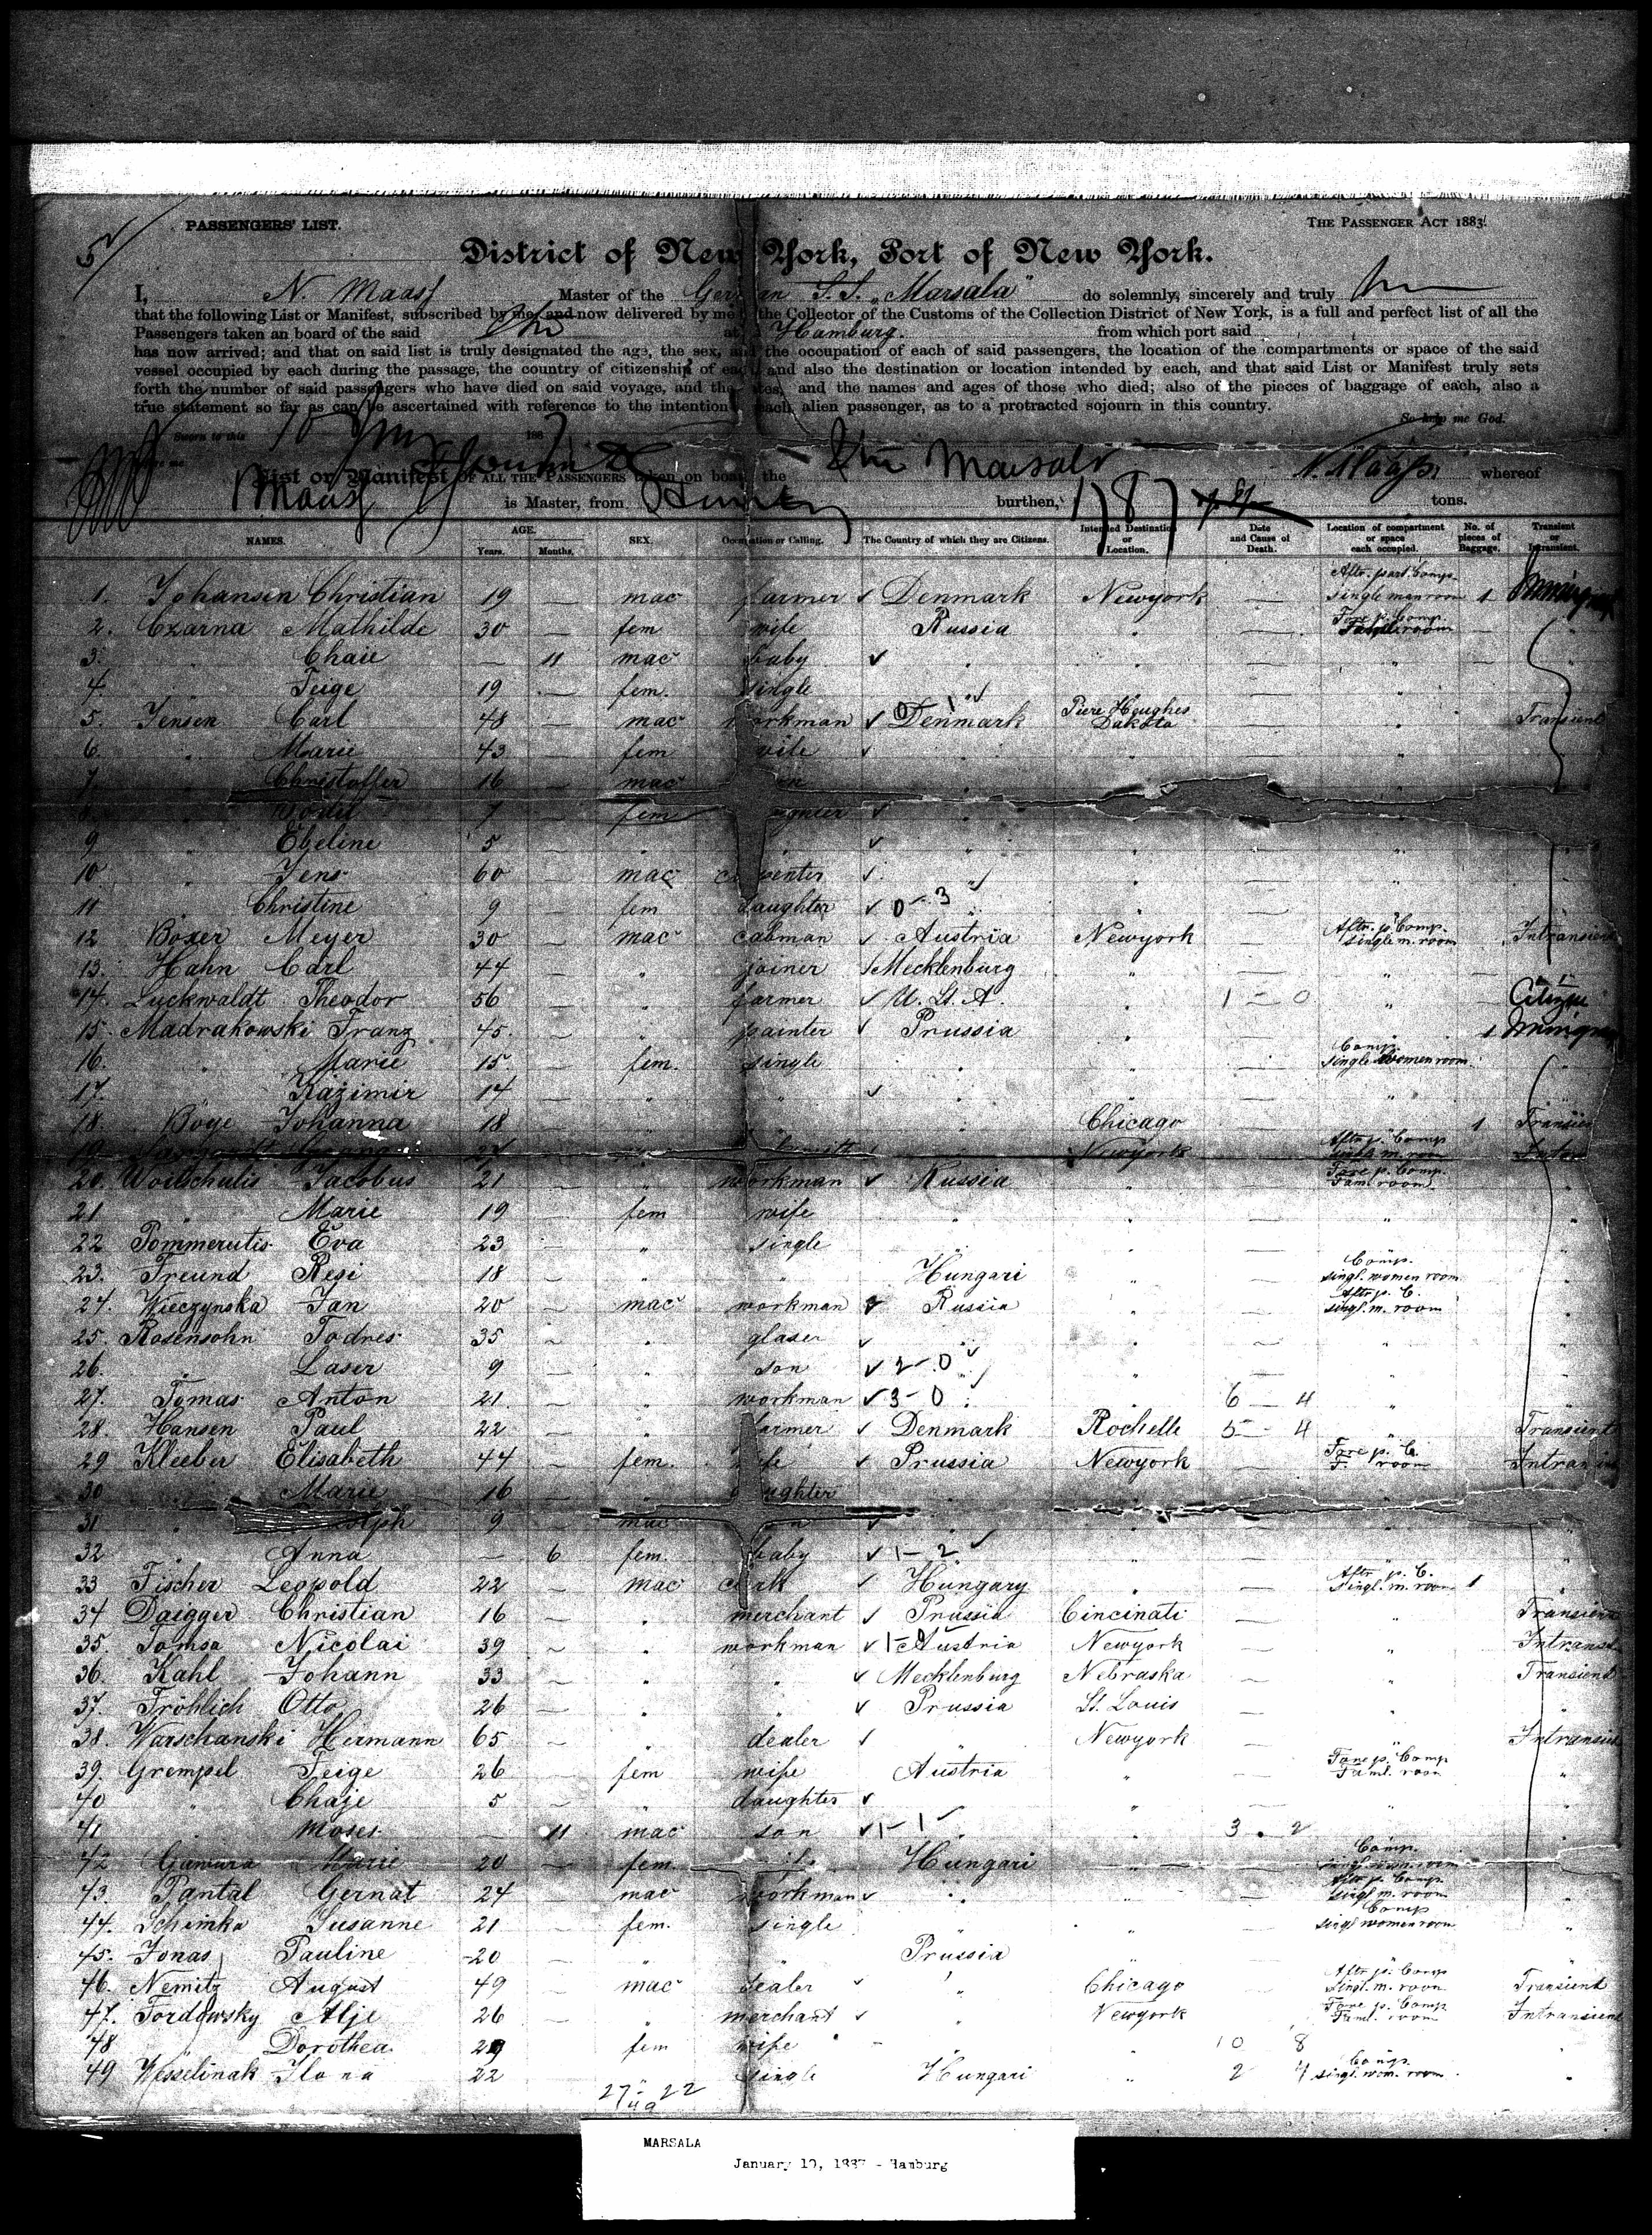 PASSENGERS' LIST.
THE PASSENGER ACT 1883.
District of New York, Port of New York.
I, N. Maass Master of the German S.S. „Marsala" do solemnly, sincerely and truly
that the following List or Manifest, subscribed by me, and now delivered by me the Collector of the Customs of the Collection District of New York, is a full and perfect list of all the
Passengers taken on board of the said at Hamburg. from which port said
has now arrived; and that on said list is truly designated the age, the sex, and the occupation of each of said passengers, the location of the compartments or space of the said
vessel occupied by each during the passage, the country of citizenship of each and also the destination or location intended by each, and that said List or Manifest truly sets
forth the number of said passengers who have died on said voyage, and the dates, and the names and ages of those who died; also of the pieces of baggage of each, also a
true statement so far as can be ascertained with reference to the intention each alien passenger, as to a protracted sojourn in this country.
So help me God.
Sworn to this 10 188
List or Manifest OF ALL THE PASSENGERS taken on board the Marsala N. Maass whereof
Maass is Master, from burthen, 1787 tons.
NAMES. AGE. Years. Months. SEX. Occupation or Calling. The Country of which they are Citizens. Intended Destination or Location. Date and Cause of Death. Location of compartment or space each occupied. No. of pieces of Baggage. Transient or Intransient.
1. Johansen Christian 19 — mac farmer ✓ Denmark Newyork — Aftr. part. Comp. single men room 1
2. Czarna Mathilde 30 — fem wife Russia " — Fore p. Comp. Fam. room
3. " Chaie — 11 mac baby ✓ "
4. " Feige 19 — fem. single "
5. Jensen Carl 48 — mac workman ✓ Denmark Dakota — Transient
6. " Marie 43 — fem wife ✓
7. " Christoffer 16 — mac son
8. " 7 — fem daughter ✓
9 " Ebeline 5 — " " ✓ "
10 " Jens 60 — mac carpenter ✓ "
11 " Christine 9 — fem daughter ✓ 0-3 "
12 Boxer Meyer 30 — mac cabman ✓ Austria Newyork — Aftr. p. Comp. single m. room Intransient
13. Hahn Carl 44 — " joiner ✓ Mecklenburg "
14. Luckwaldt Theodor 56 — " farmer ✓ U. St. A. " 1 – 0 " Citizen
15. Madrakowski Franz 45. — " painter ✓ Prussia " 1
16. " Marie 15 — fem. single " Comp. single Women room
17. " Kazimir 14 — " " ✓
18. Böye Johanna 18 — " " Chicago 1 Transient
19. Georg 27 Newyork Aftr p. Comp.
20. Woitschulis Jacobus 21 — " workman ✓ Russia " — Fore p. Comp. Fam. room
21 " Marie 19 — fem wife "
22 Pommerutis Eva 23 — " single "
23. Freund Resi 18 — " " Hungari " — Comp. singl. women room
24. Wieczynska Jan 20 — mac workman Russia " — Aftr p. C. singl. m. room
25. Rosensohn Todres 35 — " glaser ✓ "
26. " Laser 9 — " son ✓ 2-0
27. Tomas Anton 21. — " workman ✓ 3-0 " 6 — 4 "
28. Hansen Paul 22 — " farmer ✓ Denmark Rochelle 5 – 4 " Transient
29 Kleeber Elisabeth 44 — fem. wife ✓ Prussia Newyork — Fore p. C. F. room Intransient
30 " Marie 16 — " daughter
31 " 9 — mac son ✓
32 " Anna — 6 fem. baby ✓ 1-2
33 Fischer Leopold 22 — mac clerk ✓ Hungary " — Aftr p. C. Singl. m. room 1
34 Daigger Christian 16 — " merchant ✓ Prussia Cincinati — " Transient
35. Tomsa Nicolai 39 — " workman ✓ Austria Newyork — " Intransient
36. Kahl Johann 33 — " " ✓ Mecklenburg Nebraska — " Transient
37. Fröhlich Otto 26 — " " ✓ Prussia St. Louis — "
38. Warschanski Hermann 65 — " dealer ✓ " Newyork — " Intransient
39. Grempel Feige 26 — fem wife Austria " — Fore p. Comp Faml. room "
40 " Chaje 5 — " daughter ✓ "
41 " Moses — 11 mac son ✓ 1-1 " 3 . 2
42 Marie 20 — fem. Hungari " — Comp.
43. Pantal Gernat 24 — mac workman ✓ " " — Aftr p. Comp. singl m. room
44. Schimka Susanne 21 — fem. single " " — Comp singl women room "
45. Jonas Pauline 20 — " " Prussia "
46. Nemitz August 49 — mac dealer ✓ " Chicago — Aftr p. Comp Singl. m. room Transient
47. Tordowsky Alje 26 — " merchant ✓ " Newyork — Fore p. Comp Faml. room Intransient
48 " Dorothea 29 — fem wife " 10 8
49 Wesselinak Ilona 22 single Hungari " 2 4 Comp. singl. wom. room "
27 - 22
49
MARSALA
January 10, 1887 - Hamburg